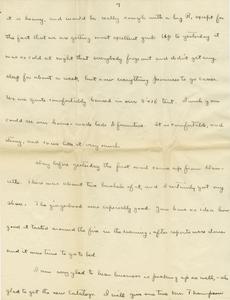 7
it is heavy, and would be really enough with a big R, except for
the fact that we are getting most excellent grub. Up to yesterday it
was so cold at night that everybody froze out and didn't get any
sleep for about a week, but now everything promises to go easier.
We are quite comfortably housed in our 9 x 12 tent. I wish you
could see our home-made beds & furniture. It is comfortable, and
, and we like it very much.
Day before yesterday the first mail came up from
. There were about two bushels of it, and I certainly got my
share. The gingerbread was especially good. You have no idea how
good it tasted around the fire in the evening, after reports were closed
and it was time to go to bed.
I am very glad to hear business is picking up so well - also
glad to get the new catalogs. I will give one to Thompson